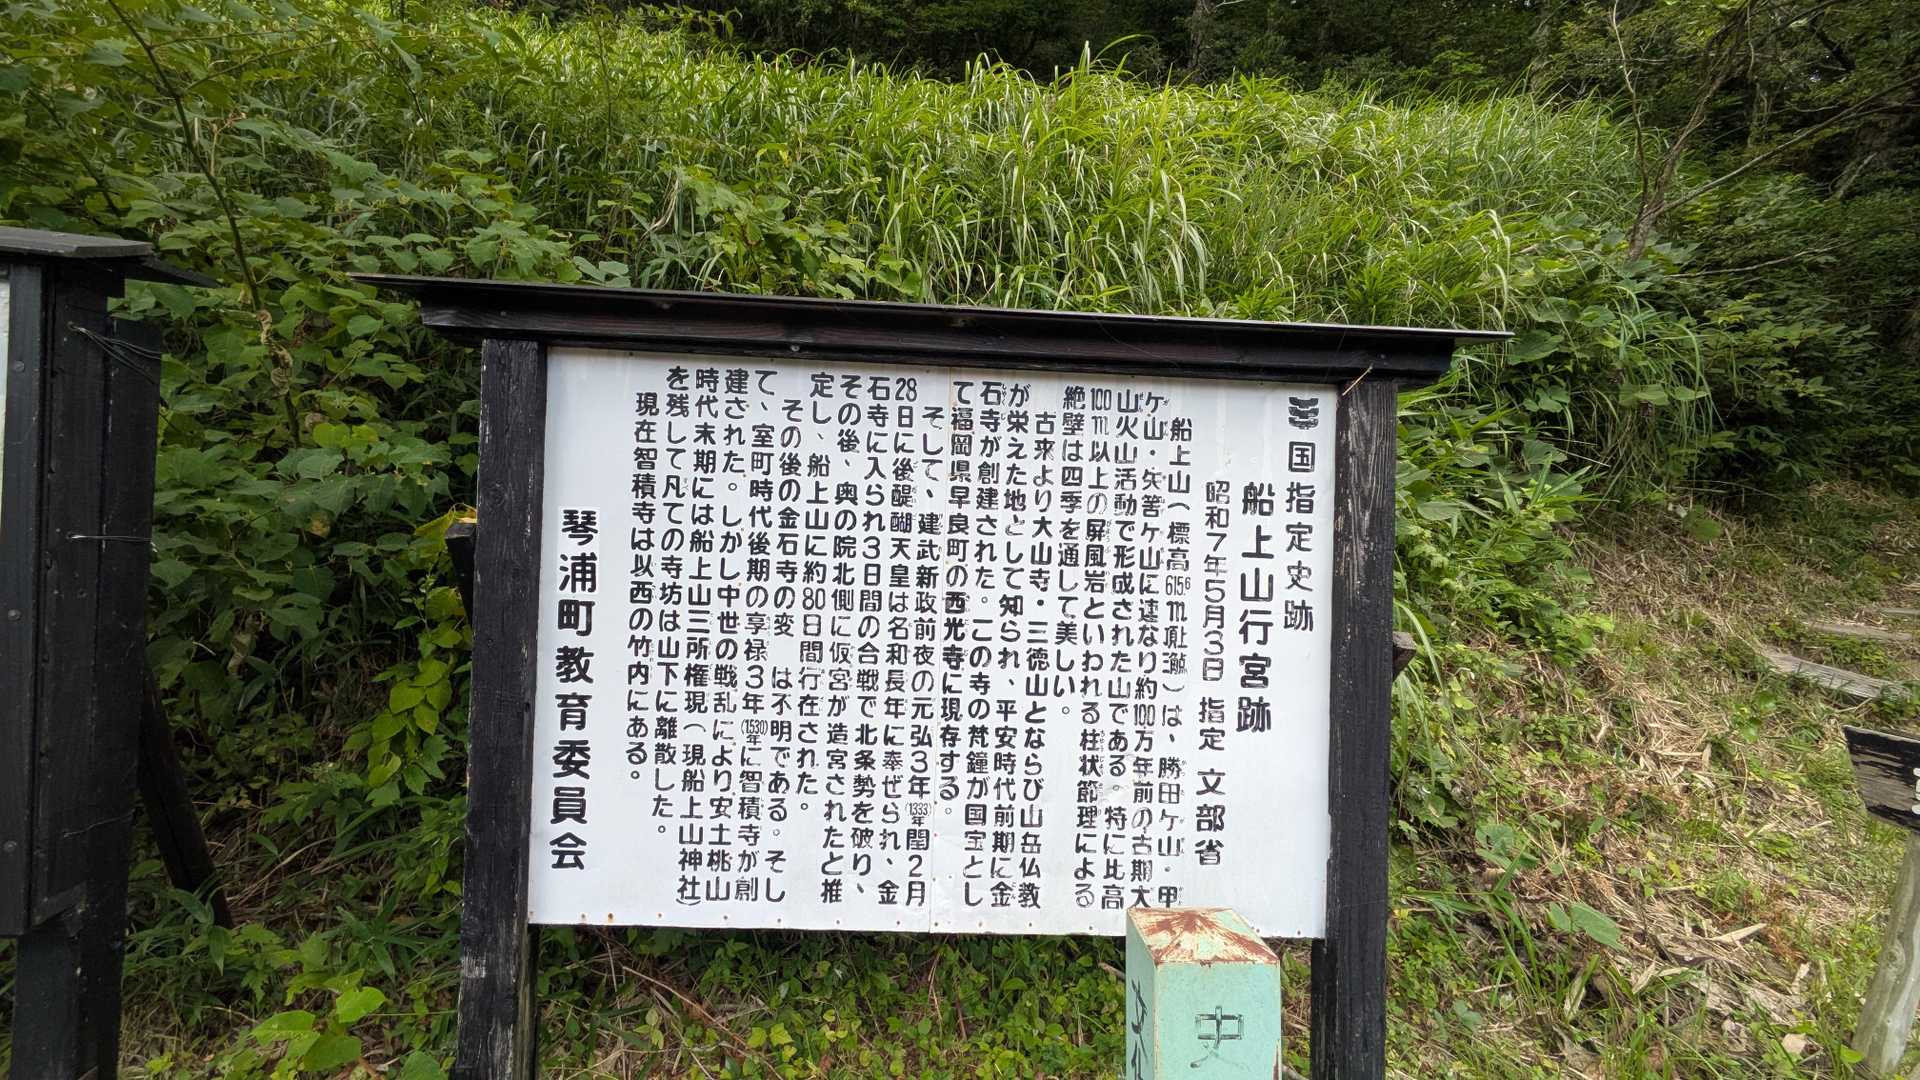 国指定史跡
船上山行宮跡
昭和7年5月3日 指定 文部省
船上山（標高615.6m頂上三角点）は、勝田ケ山・甲
ケ山・矢筈ケ山に連なり約100万年前の古期大
山火山活動で形成された山である。特に比高
100m以上の屏風岩といわれる柱状節理による
絶壁は四季を通して美しい。
古来より大山寺・三徳山とならび山岳仏教
が栄えた地として知られ、平安時代前期に金
石寺が創建された。この寺の梵鐘が国宝とし
て福岡県早良町の西光寺に現存する。
そして、建武新政前夜の元弘3年(1333年)閏2月
28日に後醍醐天皇は名和長年に奉ぜられ、金
石寺に入られ3日間の合戦で北条勢を破り、
その後、奥の院北側に仮宮が造宮されたと推
定し、船上山に約80日間行在された。
その後の金石寺の変 は不明である。そし
て、室町時代後期の享禄3年(1530年)に智積寺が創
建された。しかし中世の戦乱により安土桃山
時代末期には船上山三所権現（現船上山神社）
を残して凡ての寺坊は山下に離散した。
現在智積寺は以西の竹内にある。
琴浦町教育委員会
史